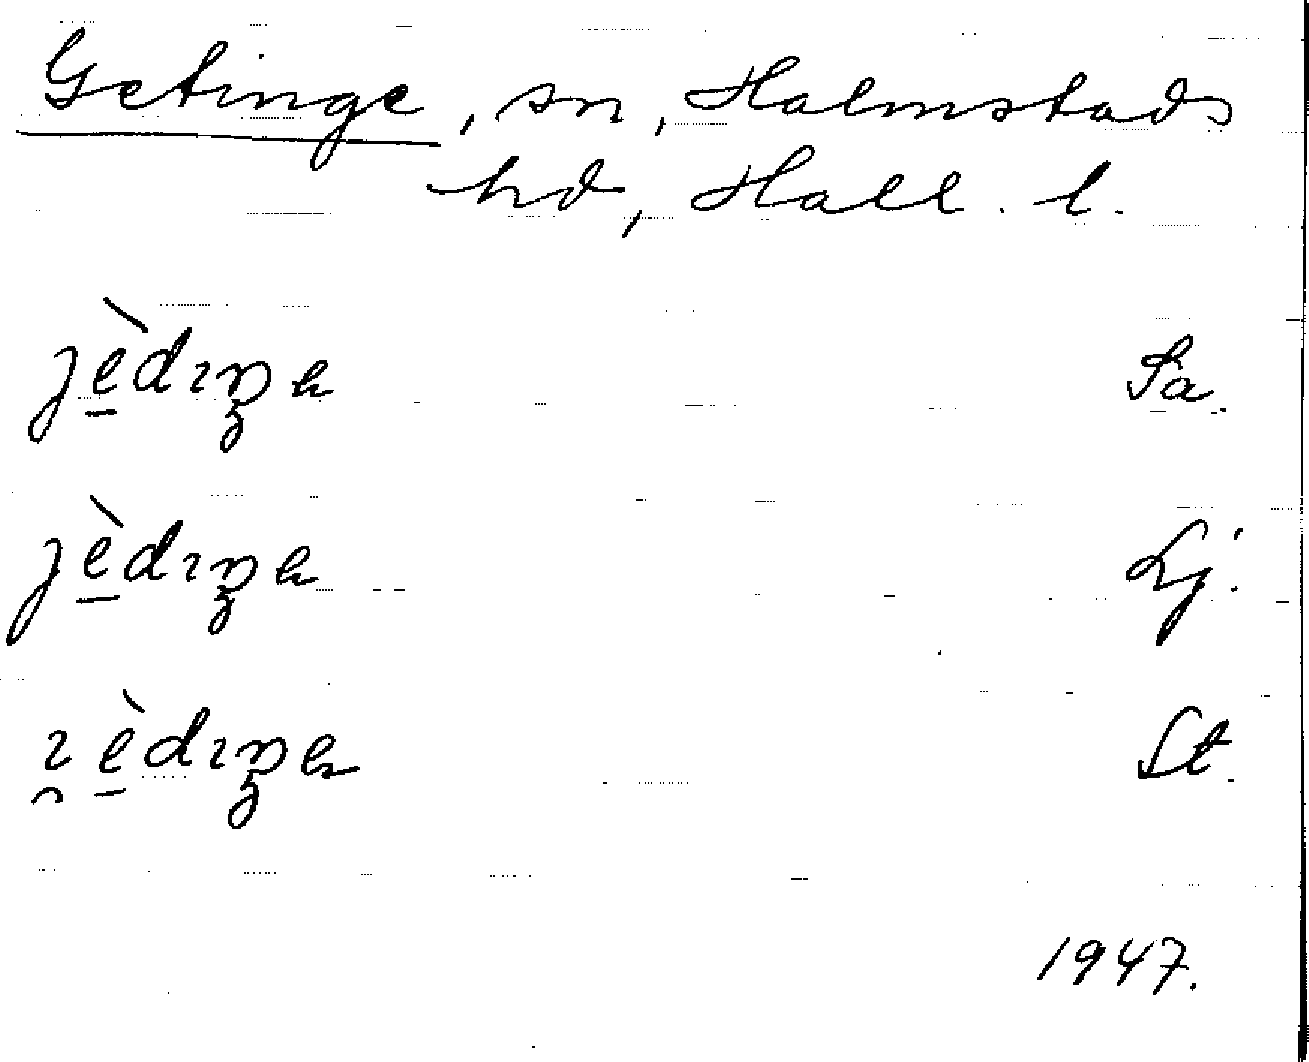 Getinge, sn, Halmstads
hd, Hall. l.
jè̱dɩŋɐ Sä.
jè̱dɩŋɐ Lj.
ɩ̯è̱dɩŋɐ St.
1947.